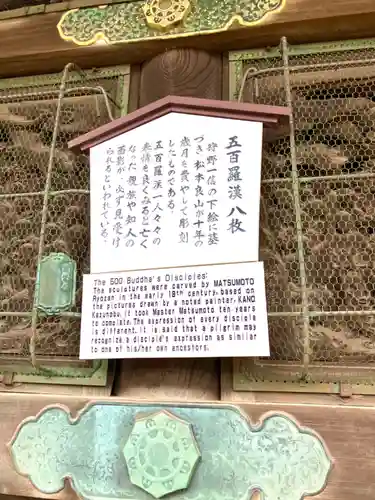 五百羅漢 八枚
狩野一信の下絵に基
づき松本良山が十年の
歳月を費やして彫刻
したものである。
五百羅漢一人々々の
表情を良くみると亡く
なった親族や知人の
面影が必ず見受け
られるといわれている。
The 500 Buddha's Disciples:
The sculptures were carved by MATSUMOTO
Ryozan in the early 19th century, based on
the pictures drawn by a noted painter, KANO
Kazunobu. (It took Master Matsumoto ten years
to complete. The expression of every disciple
is different. It is said that a pilgrim may
find at least one's expression as similar
to one of his/her own ancestors.